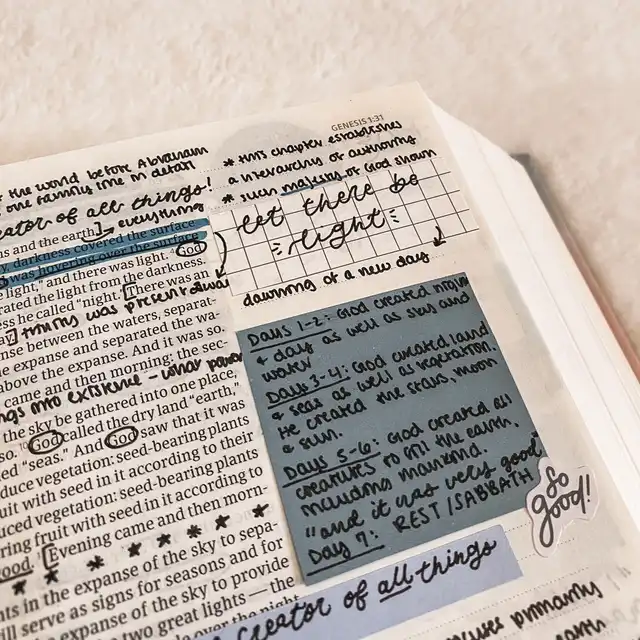 GENESIS 1:31
the world before Abraham
one family line in detail
creator of all things!
↳ everything
ns and the earth
darkness covered the surface
was hovering over the surface God
light," and there was light. God
rated the light from the darkness.
ess he called "night." There was an
trinity was present
between the waters, separat-
expanse and separated the wa-
above the expanse. And it was so.
came and then morning: the sec-
ngs into existence - what power
the sky be gathered into one place,
so. God called the dry land "earth,"
ed "seas." And God saw that it was
duce vegetation: seed-bearing plants
uit with seed in it according to their
uced vegetation: seed-bearing plants
ring fruit with seed in it according to
good. Evening came and then morn-
nts in the expanse of the sky to sepa-
will serve as signs for seasons and for
expanse of the sky to provide
two great lights — the
over the night
* this chapter establishes
a hierarchy of authority
* such majesty of God shown
let there be
light
dawning of a new day
Days 1-2: God created night
& day as well as sky and
water
Days 3-4: God created land
& seas as well as vegetation.
He created the stars, moon
& sun.
Days 5-6: God created all
creatures to fill the earth,
including mankind.
"and it was very good"
Day 7: REST/SABBATH
so good!
creator of all things
primarily